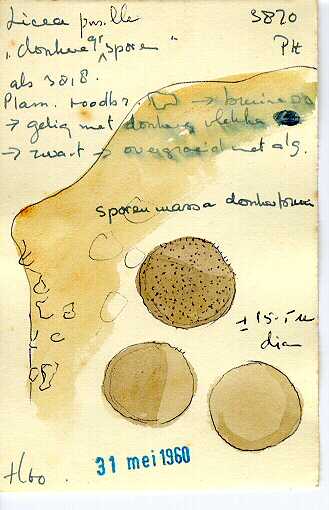 Licea pusilla 3820
"donkere gr sporen" PH
als 3818.
Plasm. roodbr. → bruinrood
→ gelig met donkere vlekke
→ zwart → overgroeid met alg.
sporenmassa donkerbruin
± 15.5 µ
diam
31 mei 1960